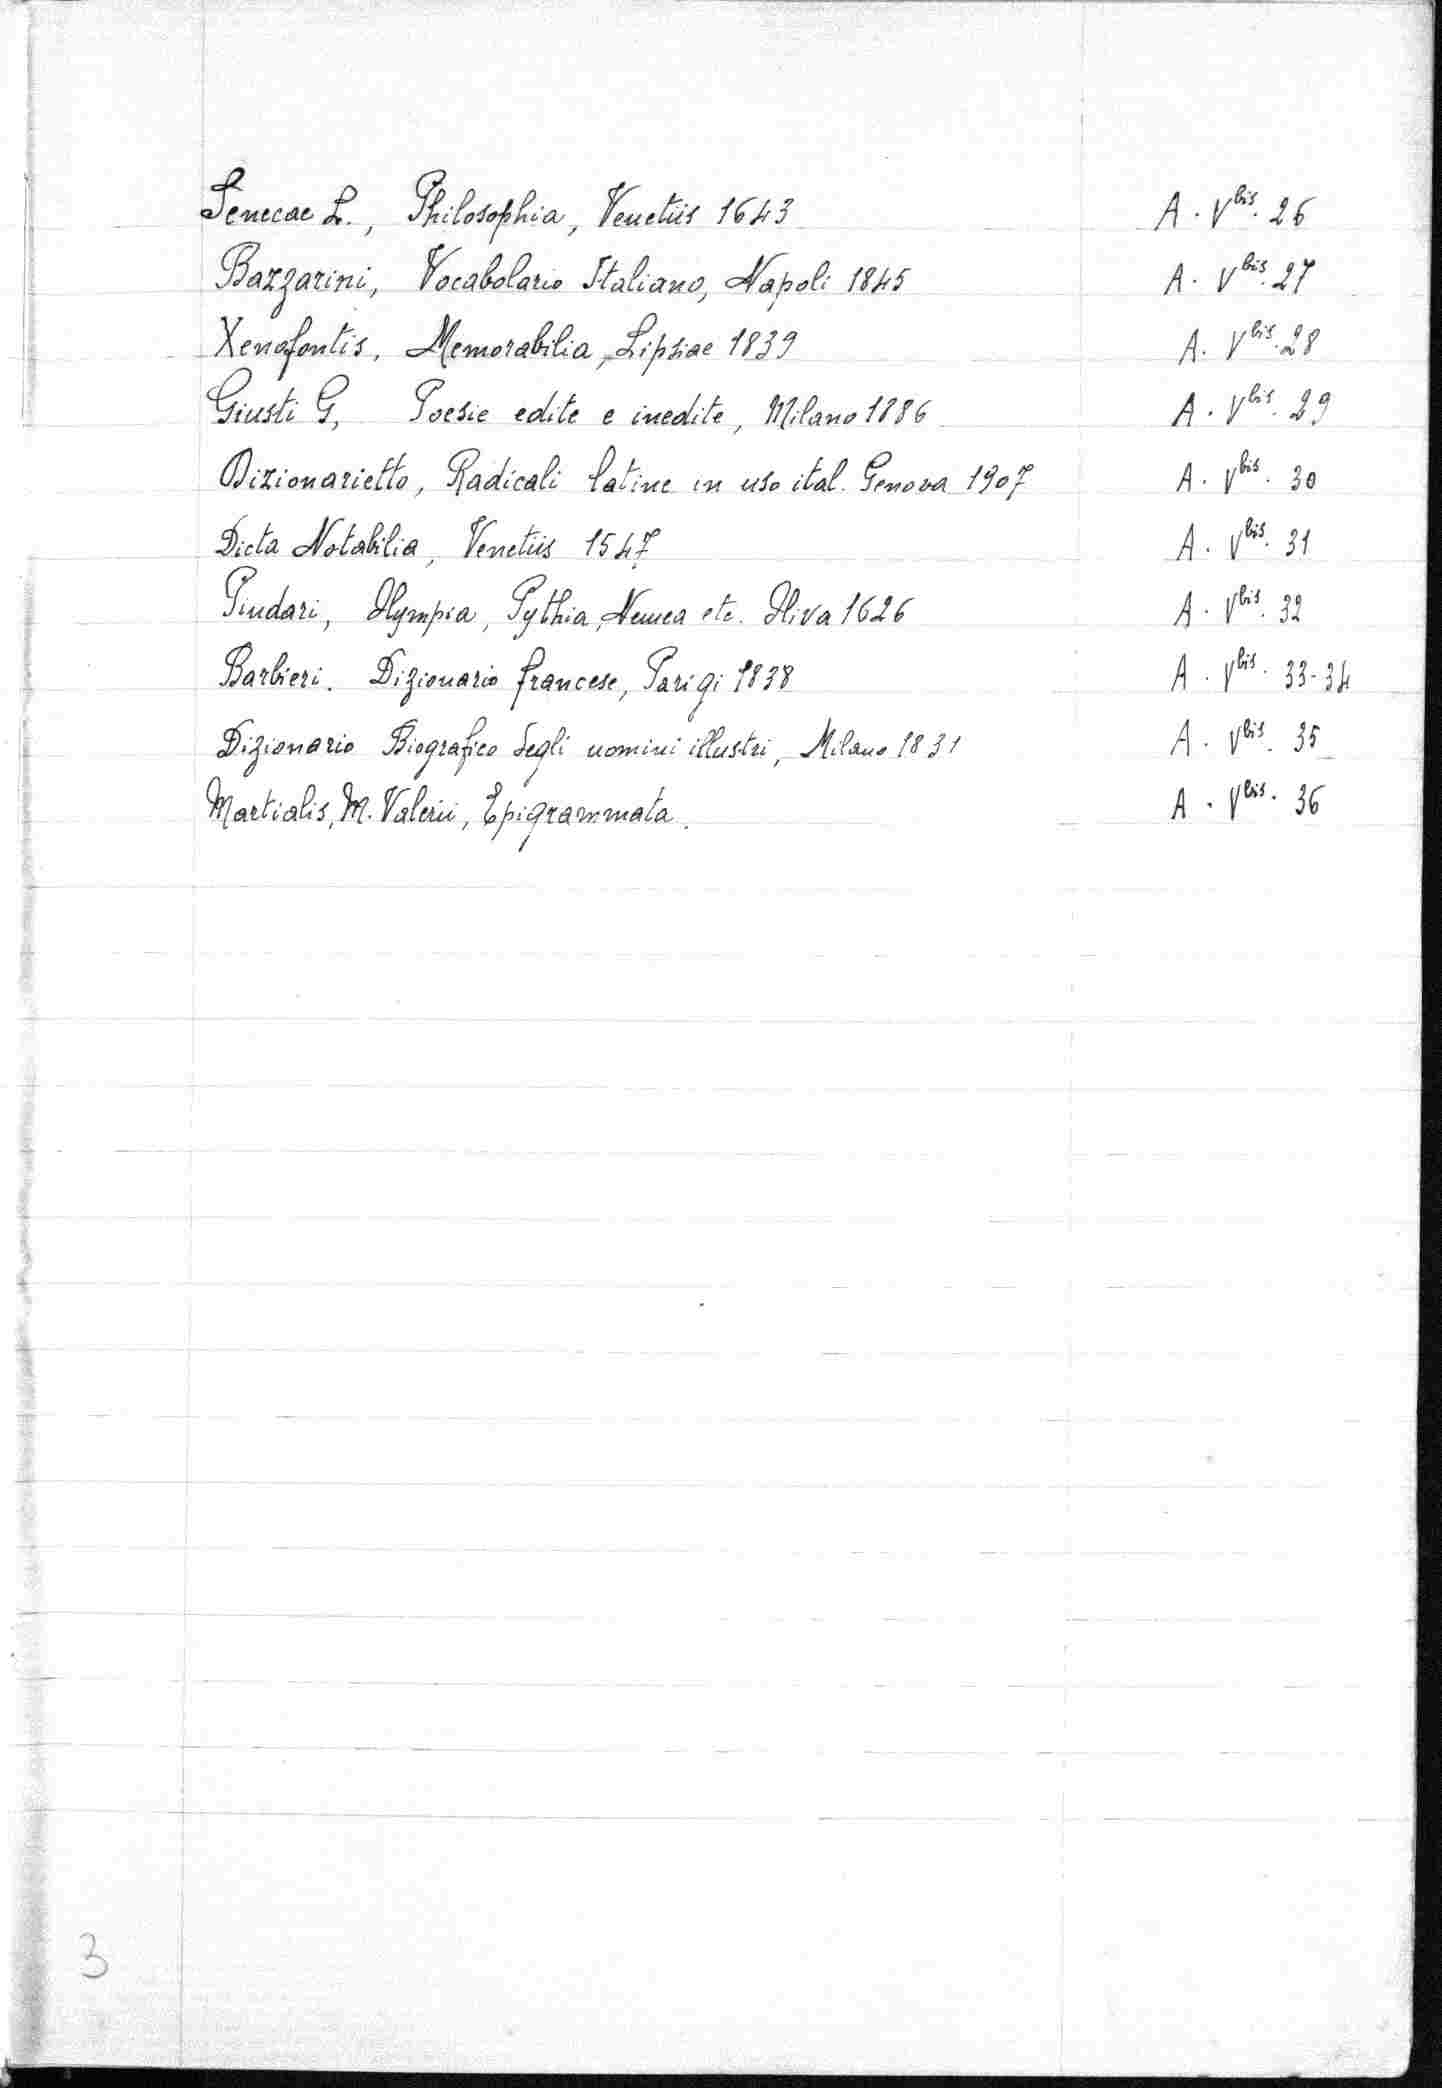 Senecae L., Philosophia, Venetiis 1643 A. Vbis. 26
Bazzarini, Vocabolario Italiano, Napoli 1845 A. Vbis. 27
Xenofontis, Memorabilia, Lipsiae 1839 A. Vbis. 28
Giusti G, Poesie edite e inedite, Milano 1886 A. Vbis. 29
Dizionarietto, Radicali latine in uso ital. Genova 1907 A. Vbis. 30
Dicta Notabilia, Venetiis 1547 A. Vbis. 31
Pindari, Olympia, Pythia, Nemea etc. Oliva 1626 A. Vbis. 32
Barbieri. Dizionario francese, Parigi 1838 A. Vbis. 33-34
Dizionario Biografico degli uomini illustri, Milano 1831 A. Vbis. 35
Martialis, M. Valerii, Epigrammata. A. Vbis. 36
3